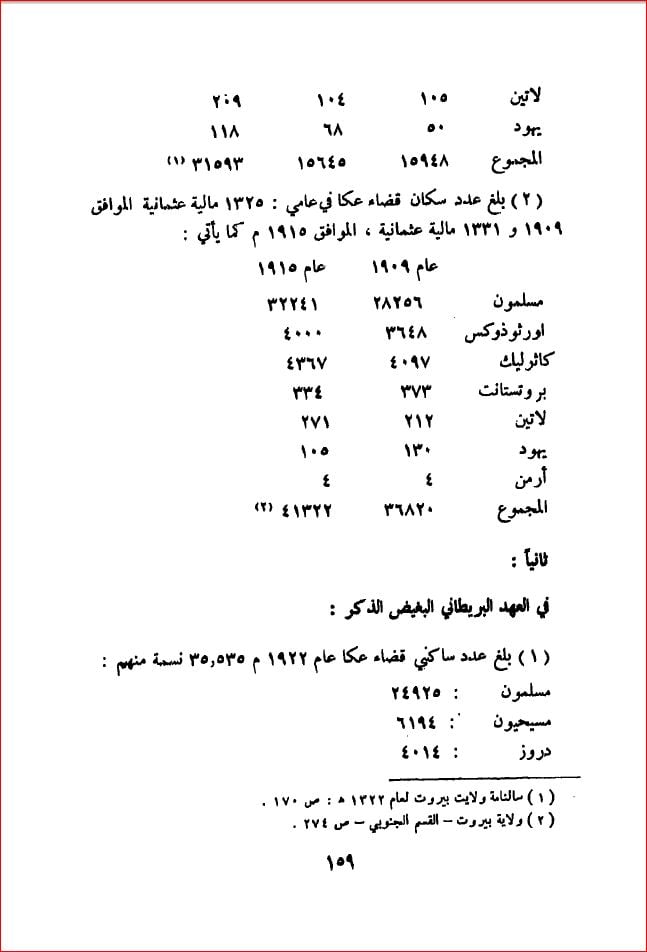 لاتين ١٠٥ ١٠٤ ٢٠٩
يهود ٥٠ ٦٨ ١١٨
المجموع ١٥٩٤٨ ١٥٦٤٥ ٣١٥٩٣ (١)
(٢) بلغ عدد سكان قضاء عكا في عامي : ١٣٢٥ مالية عثمانية الموافق
١٩٠٩ و ١٣٣١ مالية عثمانية ، الموافق ١٩١٥ م كما يأتي :
عام ١٩٠٩ عام ١٩١٥
مسلمون ٢٨٢٥٦ ٣٢٢٤١
اورثوذوكس ٣٦٤٨ ٤٠٠٠
كاثرليك ٤٠٩٧ ٤٣٦٧
بروتستانت ٣٧٣ ٣٣٤
لاتين ٢١٢ ٢٧١
يهود ١٣٠ ١٠٥
أرمن ٤ ٤
المجموع ٣٦٨٢٠ ٤١٣٢٢ (٢)
ثانياً :
في العهد البريطاني البغيض الذكر :
(١) بلغ عدد ساكني قضاء عكا عام ١٩٢٢ م ٣٥,٥٣٥ نسمة منهم :
مسلمون : ٢٤٩٢٥
مسيحيون : ٦١٩٤
دروز : ٤٠١٤
(١) سالنامة ولايت بيروت لعام ١٣٢٢ ه : ص ١٧٠ .
(٢) ولاية بيروت – القسم الجنوبي – ص ٢٧٤ .
١٥٩